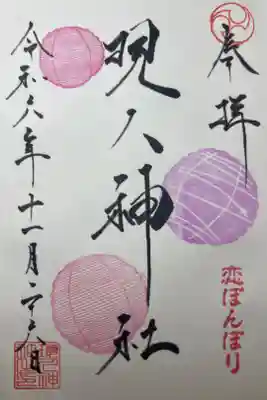 奉拝
恋ぼんぼり
現人神社
令和六年十一月二十六日